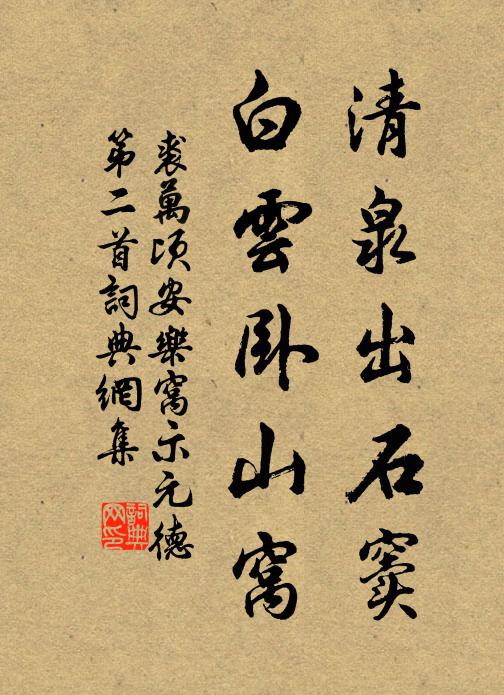 清泉出石竇
白雲卧山窩
裘萬頃安樂窩示元德
第二首詞典網集
詞典
网印